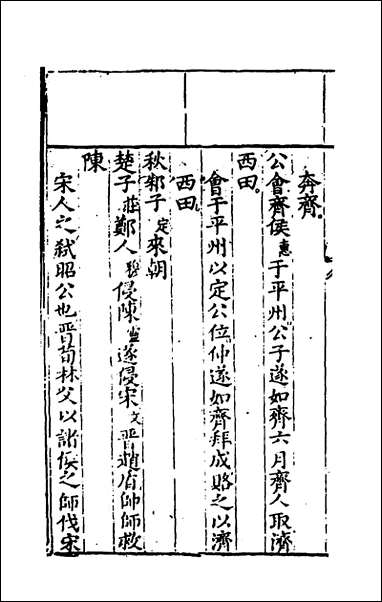 奔齊
公會齊侯惠于平州公子遂如齊六月齊人取濟
西田
會于平州以定公位仲遂如齊拜成賂之以濟
西田
秋邾子定來朝
楚子莊鄭人穆侵陳靈遂侵宋文晋趙盾帥師救
陳
宋人之弑昭公也晋荀林父以諸侯之師伐宋